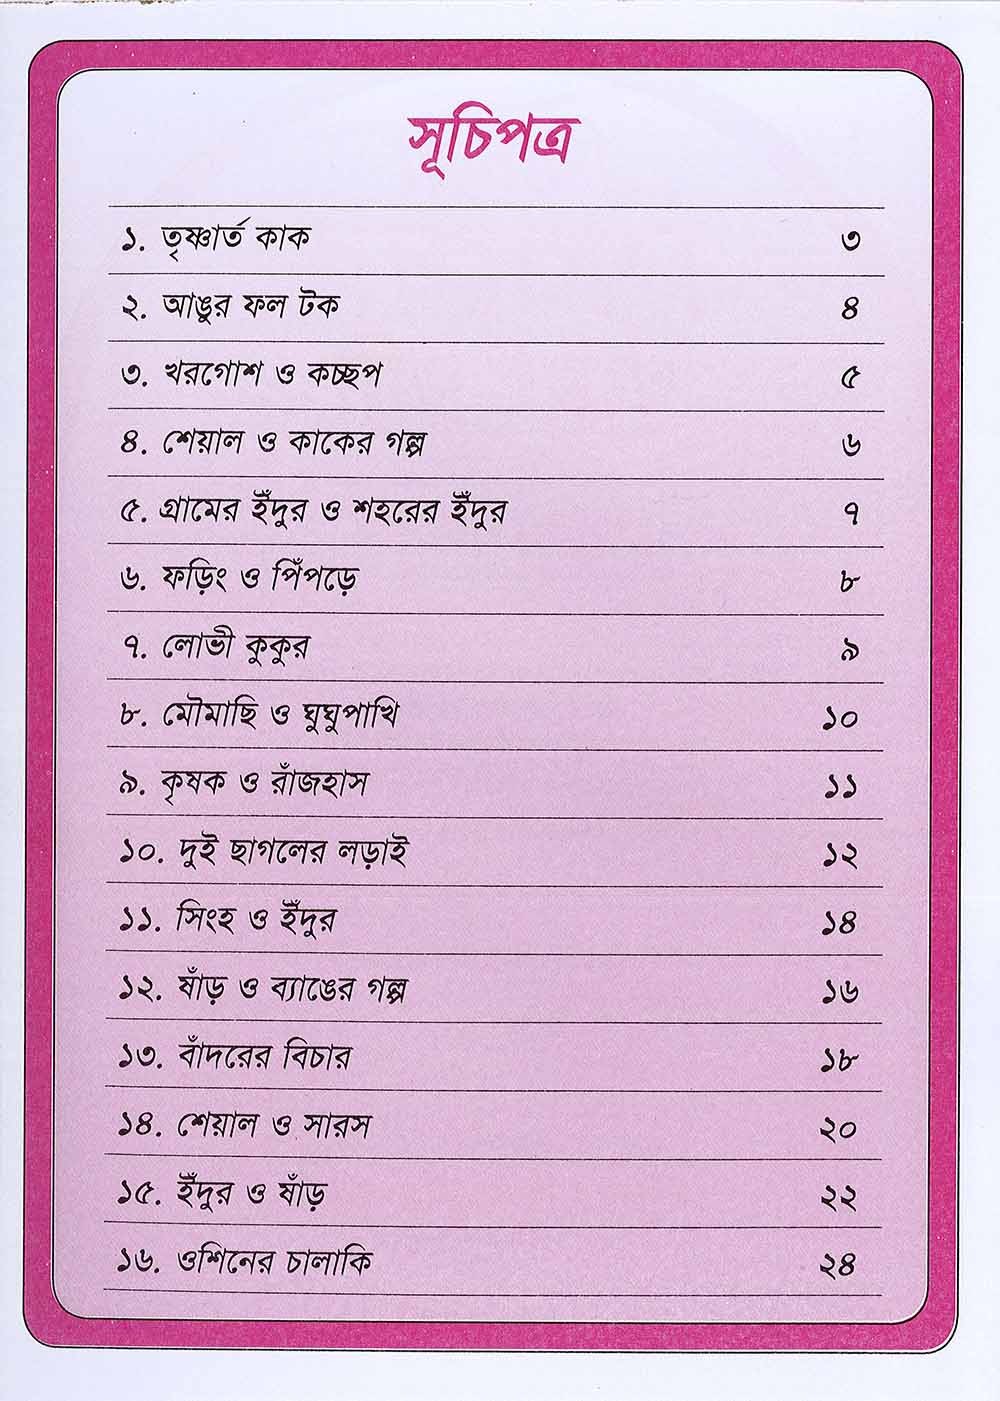 সূচিপত্র
১. তৃষ্ণার্ত কাক ৩
২. আঙুর ফল টক ৪
৩. খরগোশ ও কচ্ছপ ৫
৪. শেয়াল ও কাকের গল্প ৬
৫. গ্রামের ইঁদুর ও শহরের ইঁদুর ৭
৬. ফড়িং ও পিঁপড়ে ৮
৭. লোভী কুকুর ৯
৮. মৌমাছি ও ঘুঘুপাখি ১০
৯. কৃষক ও রাঁজহাস ১১
১০. দুই ছাগলের লড়াই ১২
১১. সিংহ ও ইঁদুর ১৪
১২. ষাঁড় ও ব্যাঙের গল্প ১৬
১৩. বাঁদরের বিচার ১৮
১৪. শেয়াল ও সারস ২০
১৫. ইঁদুর ও ষাঁড় ২২
১৬. ওশিনের চালাকি ২৪